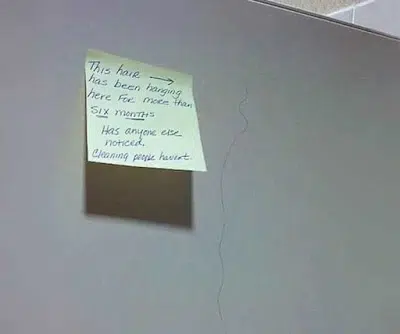 This hair →
has been hanging
here For more than
six months
Has anyone else
noticed,
Cleaning people havent.